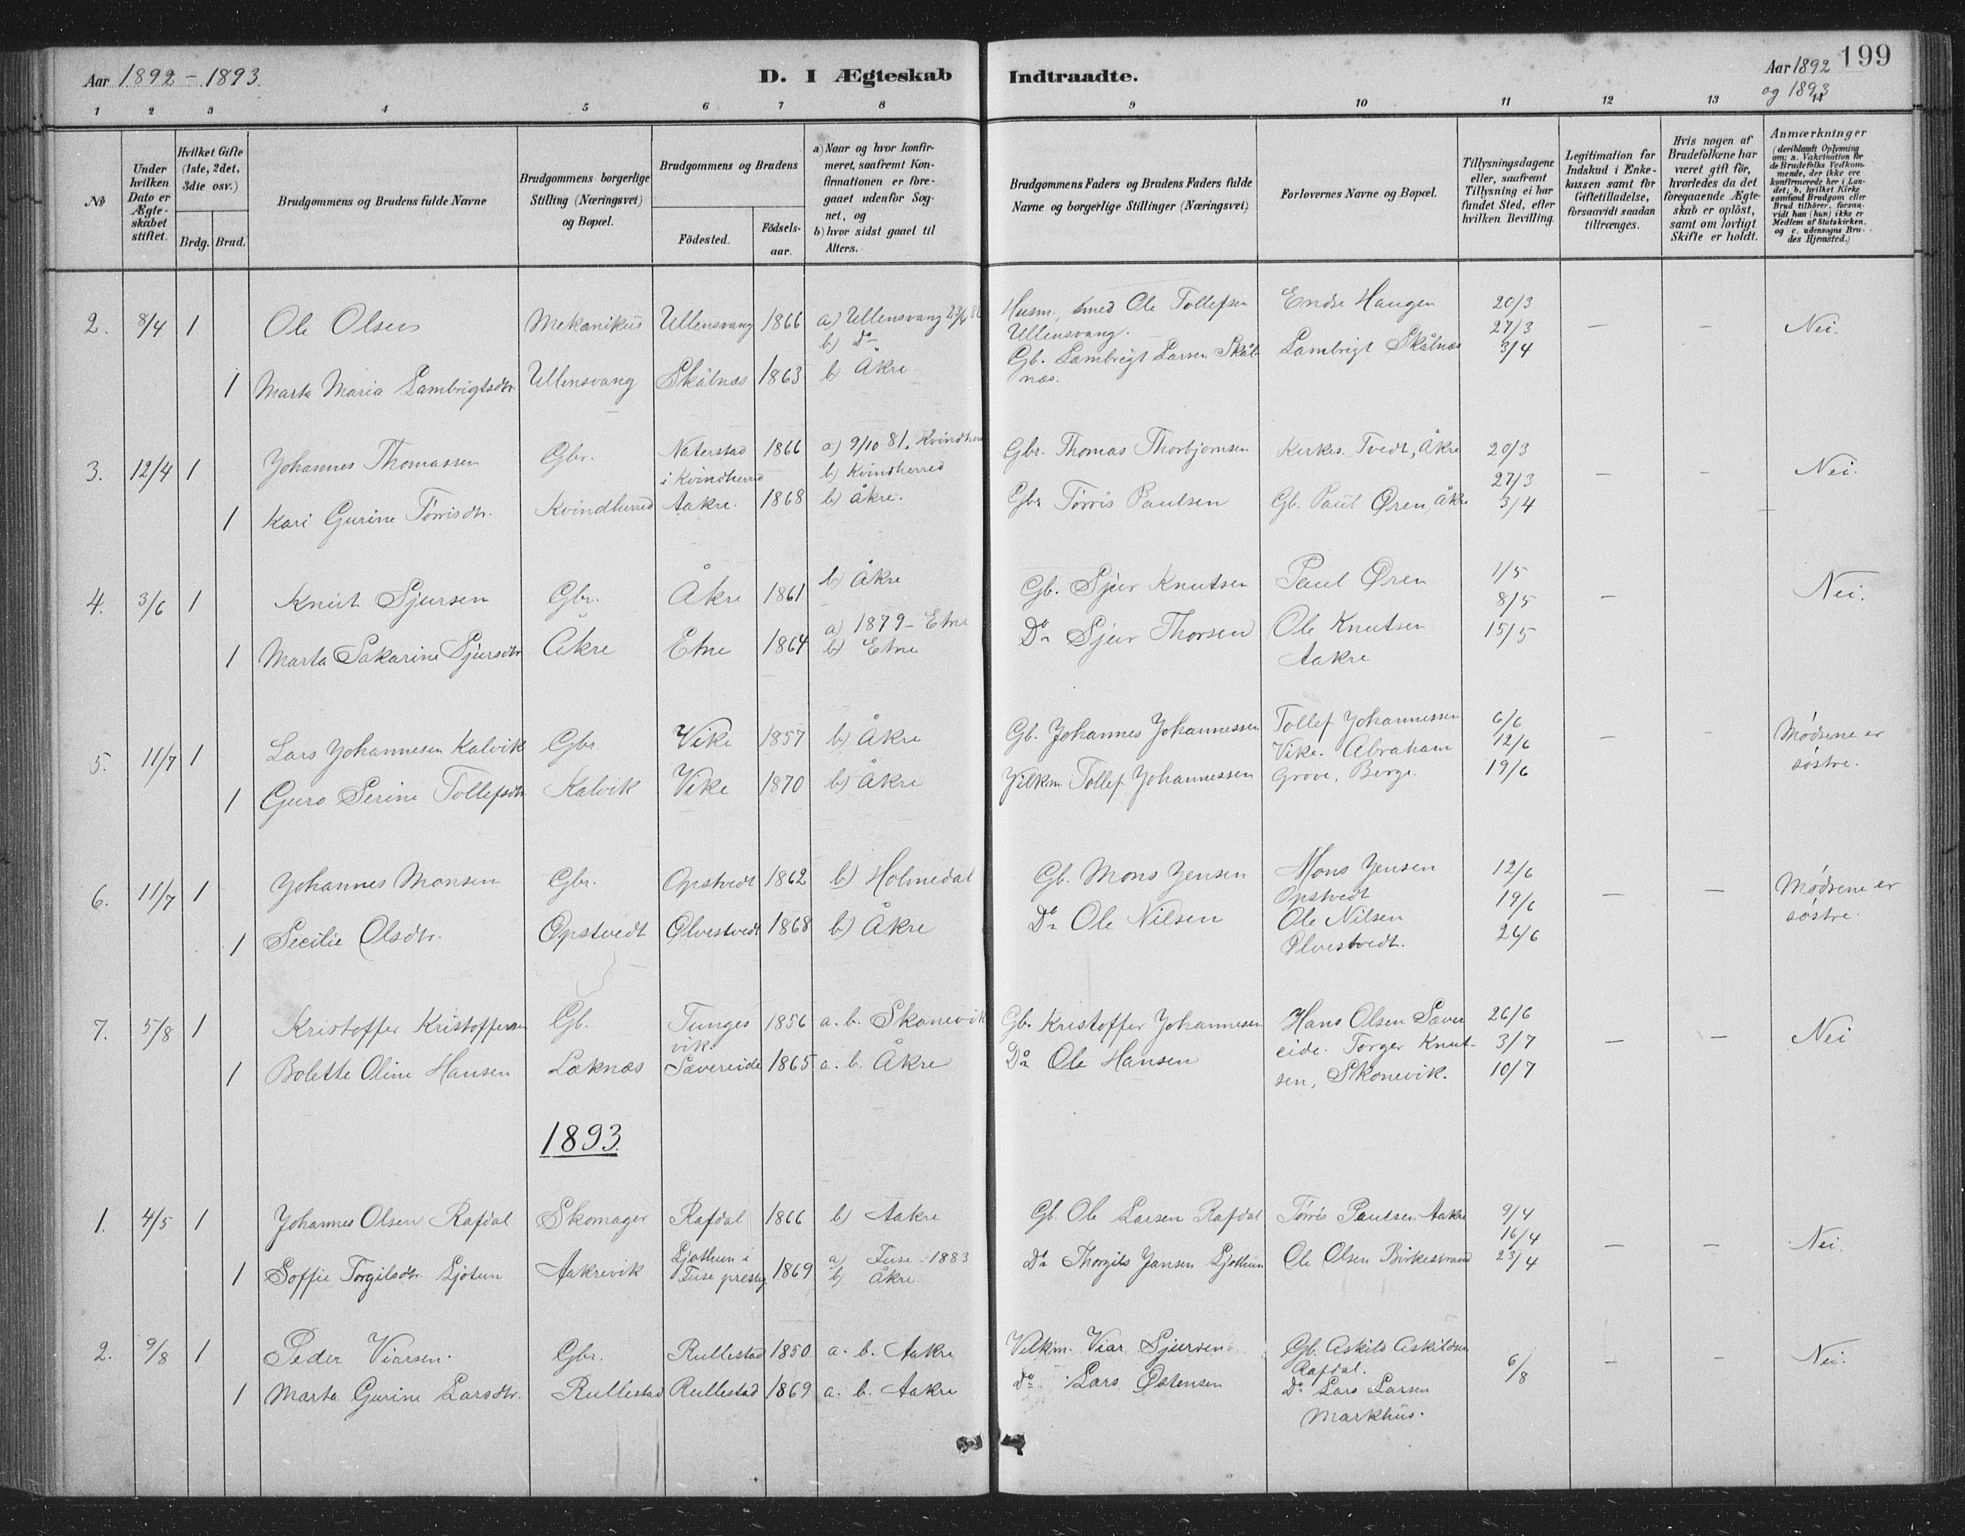 Aar 1892 - 1893.
D. I Ægteskab
Indtraadte.
Aar 1892 og 1893
199
1 2 3 4 5 6 7 8 9 10 11 12 13 14
No
Under hvilken Dato er Ægteskabet stiftet.
Hvilket Gifte (1ste, 2det, 3die osv.)
Brdg. Brud.
Brudgommens og Brudens fulde Navne
Brudgommens borgerlige Stilling (Næringsvei) og Bopæl.
Brudgommens og Brudens
Födested.
Födsels-aar.
a) Naar og hvor konfirmeret, saafremt Konfirmationen er foregaaet udenfor Sognet, og
b) hvor sidst gaaet til Alters.
Brudgommens Faders og Brudens Faders fulde Navne og borgerlige Stillinger (Næringsvei)
Forlovernes Navne og Bopæl.
Tillysningsdagene eller, saafremt Tillysning ei har fundet Sted, efter hvilken Bevilling.
Legitimation for Indskud i Enkekassen samt for Giftetilladelse, forsaavidt saadan tiltrænges.
Hvis nogen af Brudefolkene har været gift för, hvorledes da det foregaaende Ægteskab er oplöst, samt om lovligt Skifte er holdt.
Anmærkninger (deriblandt Oplysning om: a. Vakcination for de Brudefolks Vedkommende, der ikke ere konfirmerede her i Landet; b. hvilket Kirkesamfund Brudgom eller Brud tilhörer, forsaavidt han (hun) ikke er Medlem af Statskirken, og c. udensogns Brudes Hjemsted.)
2. 8/4 1 Ole Olsen Mekanikus Ullensvang 1866 a) Ullensvang b) Do Husm., smed Ole Tollefsen Ullensvang. Endre Haugen 20/3 27/3 3/4 — — Nei.
1 Marta Maria Lambrigtsdtr. Ullensvang Skålnæs 1863 b) Åkre Gb. Lambrigt Larsen Skålnæs. Lambrigt Skålnæs
3. 12/4 1 Johannes Thomassen Gbr. Naterstad i Kvindherred 1866 a) 9/10 81. Kvindher b) Kvindherred Gbr. Thomas Thorbjørnsen Kirkes. Tvedt, Åkre 20/3 27/3 3/4 — — Nei.
1 Kari Gurine Tørrisdtr. Kvindherred Aakre. 1868 b) Åkre. Gbr Tørris Paulsen Gb. Paul Øren, Åkre
4. 3/6 1 Knut Sjursen Gbr. Åkre 1861 b) Åkre Gb. Sjur Knutsen Paul Øren 1/5 8/5 15/5 — Nei.
1 Marta Sakarine Sjursdtr Åkre Etne 1864 a) 1879 - Etne b) Etne Do Sjur Thorsen Ole Knutsen Aakre
5. 11/7 1 Lars Johannesen Kalvik Gbr. Vike 1857 b) Åkre Gb. Johannes Johannessen Tollef Johannessen Vike. Abraham Grove, Berge. 6/6 12/6 19/6 — — Mødrene er søstre.
1 Guro Serine Tollefsdtr Kalvik Vike 1870 b) Åkre Vilkm Tollef Johannessen
6. 11/7 1 Johannes Monsen Gbr. Opstvedt 1862 b) Holmedal Gb. Mons Jensen Mons Jensen Opstvedt 12/6 19/6 26/6 — — Mødrene er søstre.
1 Secilie Olsdtr. Opstvedt Ølvestvedt 1868 b) Åkre Do Ole Nilsen Ole Nilsen Ølvestvedt.
7. 5/8 1 Kristoffer Kristoffersen Gb. Tungesvik. 1856 a. b. Skonevik Gb. Kristoffer Johannesen Hans Olsen Sævereide. Torger Knutsen, Skonevik. 26/6 3/7 10/7 — — Nei
1 Bolette Oline Hansen Læknæs Sævereide 1865 a. b. Åkre Do Ole Hansen
1893.
1. 4/5 1 Johannes Olsen Rafdal Skomager Rafdal 1866 b) Aakre Gb. Ole Larsen Rafdal Tørris Paulsen Aakre 9/4 16/4 23/4 — — Nei.
1 Soffie Torgilsdtr. Ljotun Aakrevik Ljothun i Fuse prestg 1869 a) Fuse - 1883 b) Åkre Do Thorgils Jansen Ljothun Ole Olsen Birkestrand
2. 9/8 1 Peder Viarsen. Gbr. Rullestad 1850 a. b. Aakre Vilkm. Viar Sjursen Gb. Askild Askildsen Rafdal. 6/8 — — Nei.
1 Marta Gurine Larsdtr. Rullestad Rullestad 1869 a. b. Aakre Do Lars Østensen Do Lars Larsen Markhus.